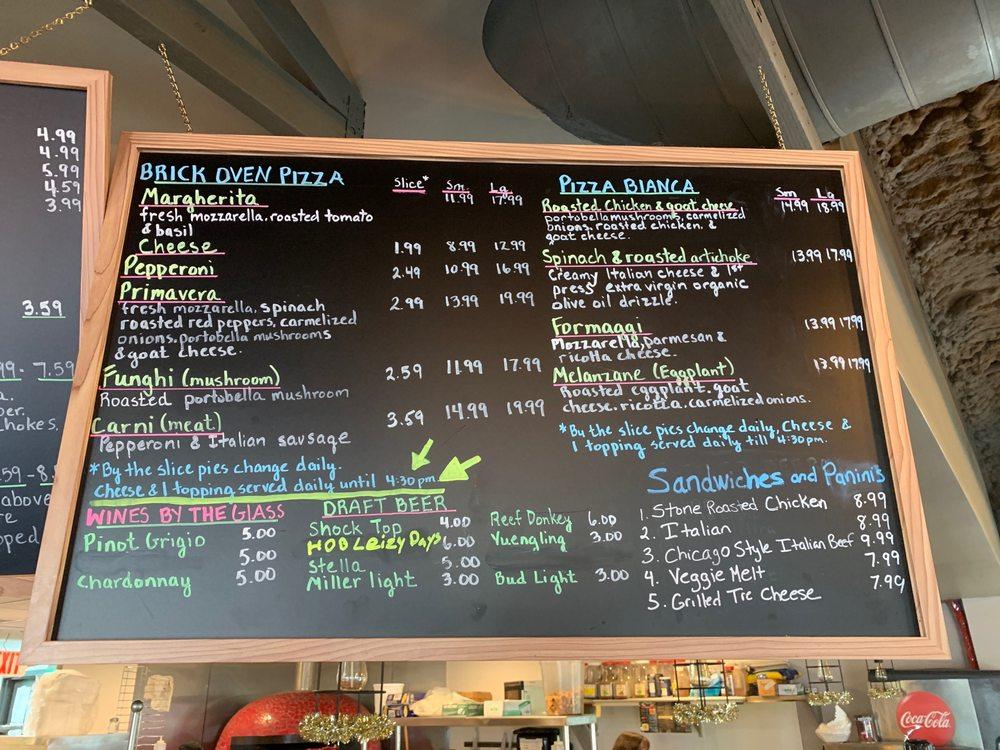 4.99
4.99
5.99
4.59
3.99
3.59
99 - 7.59
hokes,
59 - 8.
above
BRICK OVEN PIZZA Slice* Sm Lg
Margherita 11.99 17.99
fresh mozzarella, roasted tomato
& basil
Cheese 1.99 8.99 12.99
Pepperoni 2.49 10.99 16.99
Primavera 2.99 13.99 19.99
fresh mozzarella, spinach
roasted red peppers, carmelized
onions, portobella mushrooms
& goat cheese.
Funghi (mushroom) 2.59 11.99 17.99
Roasted portobella mushroom
Carni (meat) 3.59 14.99 19.99
Pepperoni & Italian sausage
*By the slice pies change daily.
Cheese & 1 topping served daily until 4:30 pm
WINES BY THE GLASS
Pinot Grigio 5.00
5.00
Chardonnay 5.00
DRAFT BEER
Shock Top 4.00
HOO Leizy Days 6.00
Stella 5.00
Miller light 3.00
Reef Donkey 6.00
Yuengling 3.00
Bud Light 3.00
PIZZA BIANCA Sm Lg
Roasted Chicken & goat cheese 14.99 18.99
portobella mushrooms, carmelized
onions, roasted chicken, &
goat cheese.
Spinach & roasted artichoke 13.99 17.99
Creamy Italian cheese & 1st
press extra virgin organic
olive oil drizzle.
Formaagi 13.99 17.99
Mozzarella, parmesan &
ricotta cheese.
Melanzane (Eggplant) 13.99 17.99
Roasted eggplant, goat
cheese, ricotta, carmelized onions.
*By the slice pies change daily, Cheese &
1 topping served daily till 4:30pm.
Sandwiches and Panini's
1. Stone Roasted Chicken 8.99
2. Italian 8.99
3. Chicago Style Italian Beef 9.99
4. Veggie Melt 7.99
5. Grilled Tre Cheese 7.99
Coca-Cola